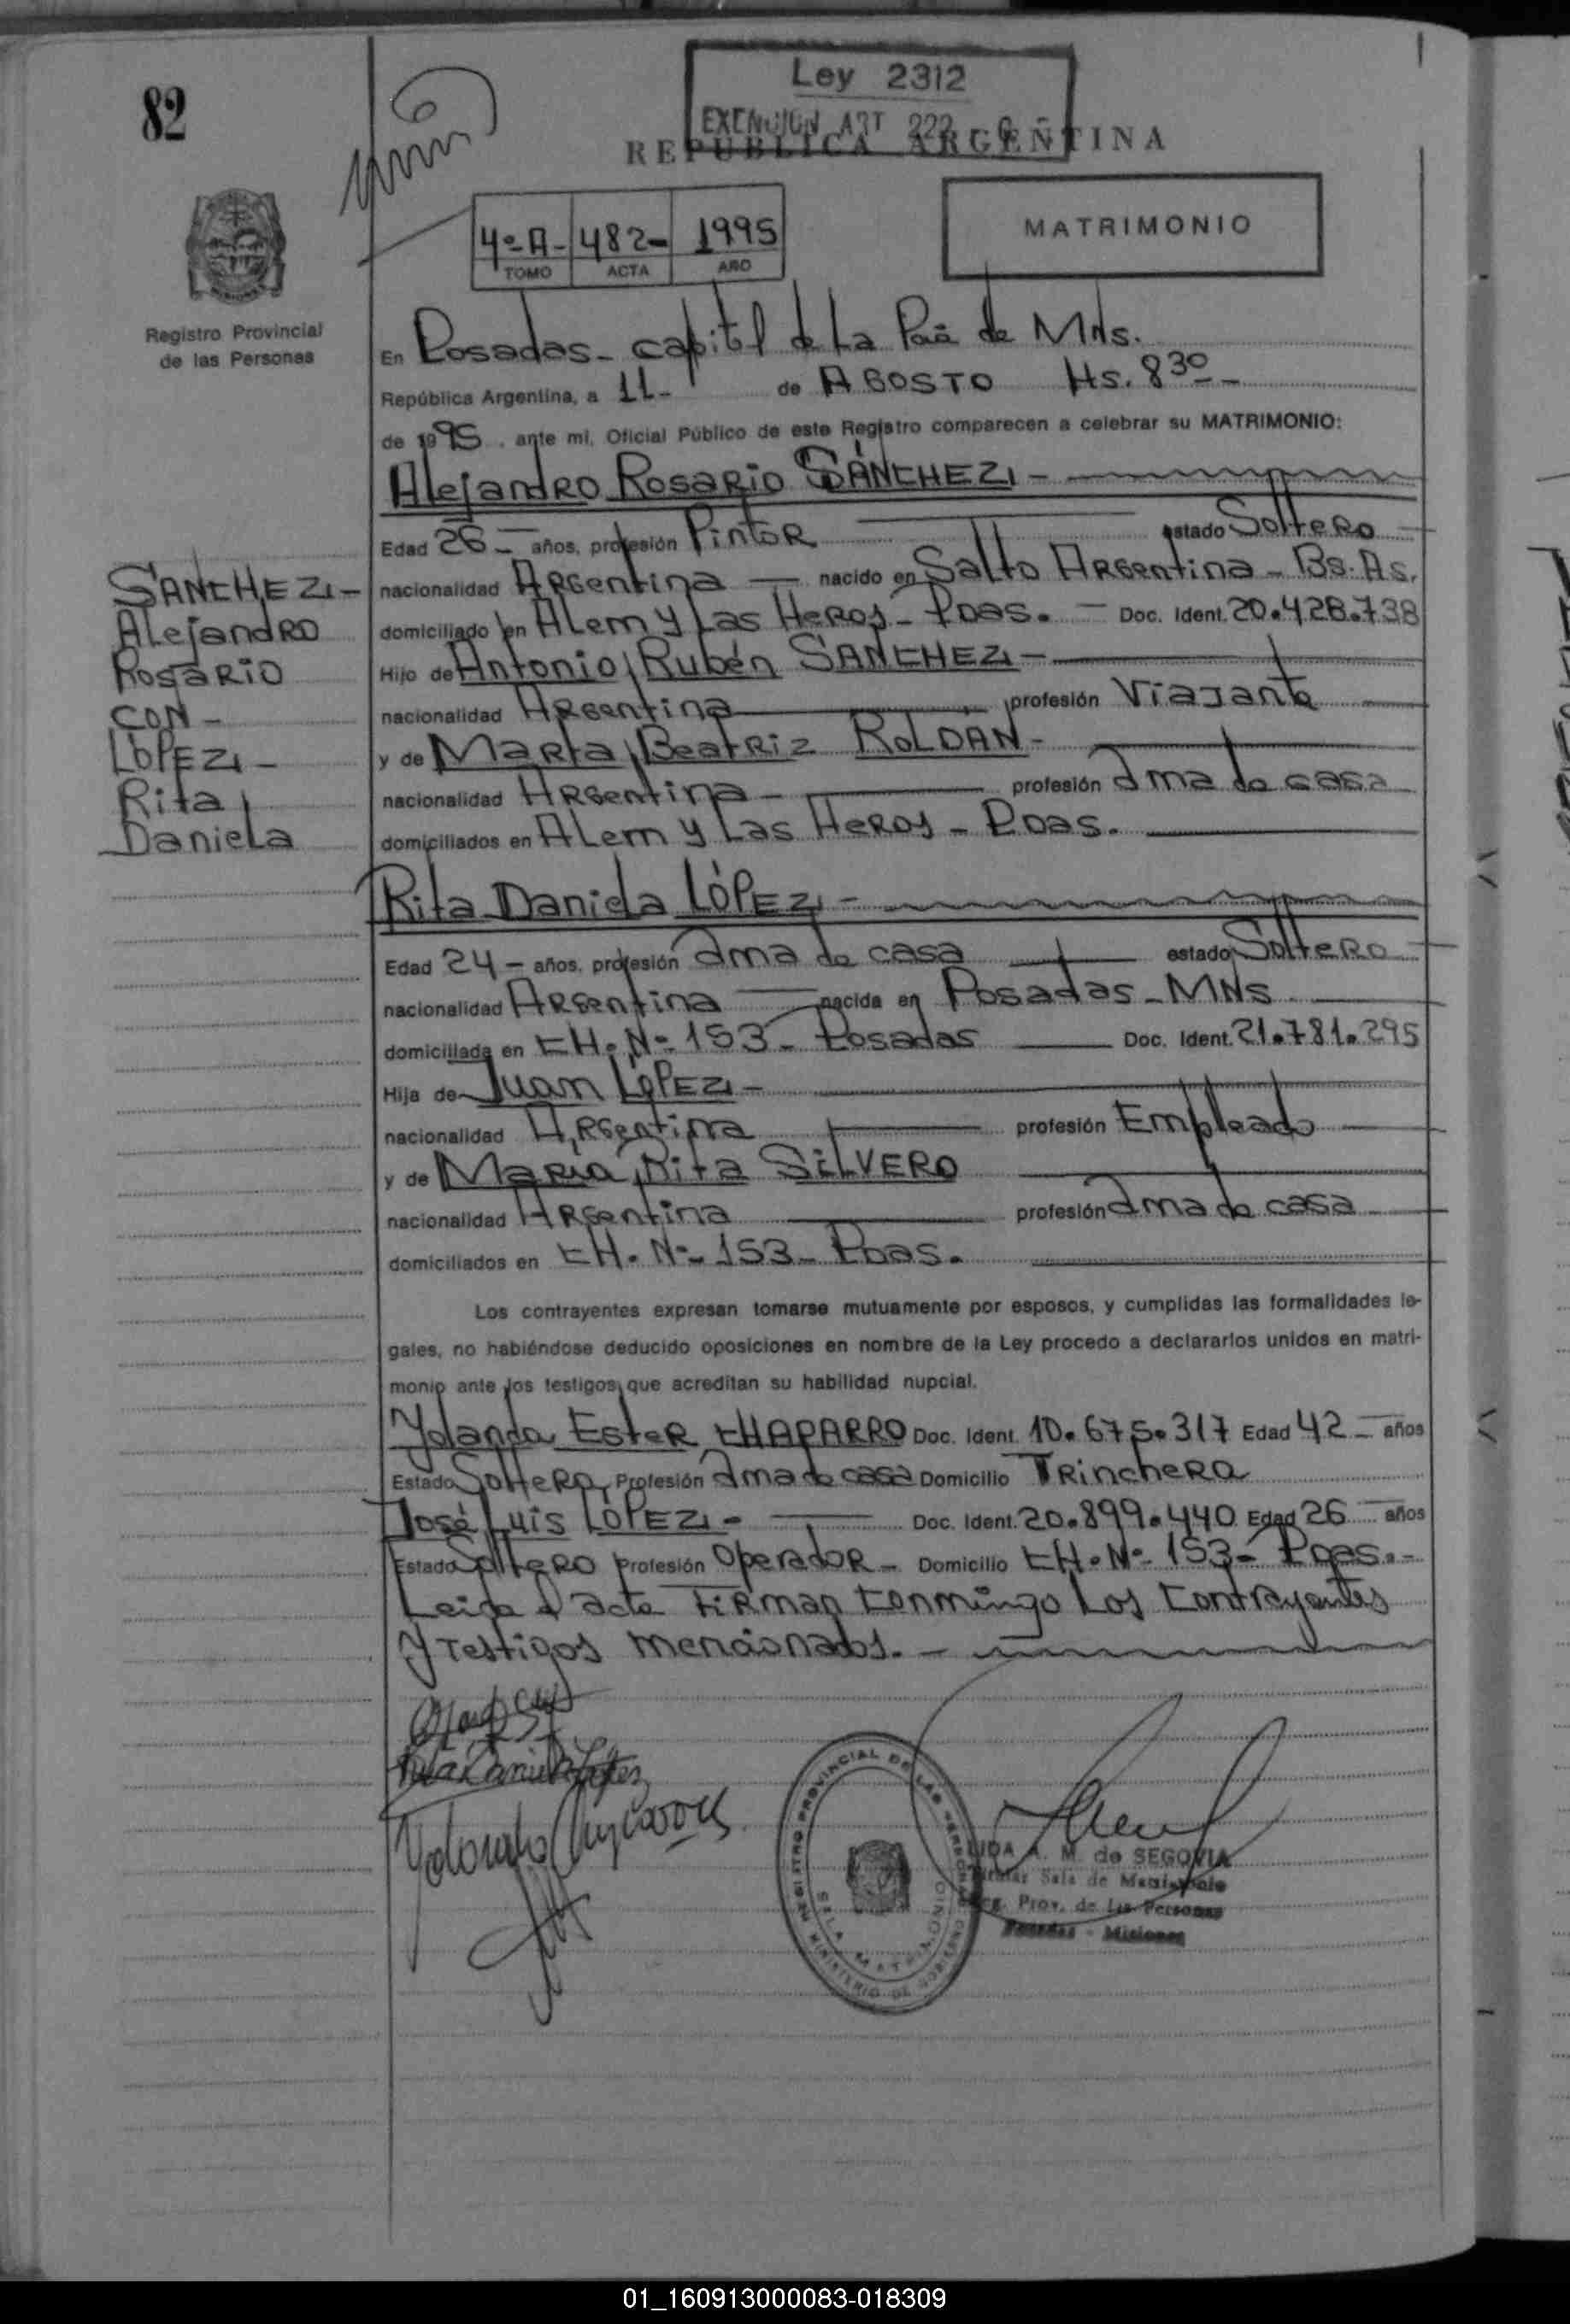 82
Ley 2312
EXENCION ART 222
REPUBLICA ARGENTINA
4º A- 482- 1995
TOMO ACTA AÑO
MATRIMONIO
Registro Provincial
de las Personas
En Posadas - capital de La Pcia de Mns.
República Argentina, a 11- de AGOSTO Hs. 8 30 -
de 1995, ante mi, Oficial Público de este Registro comparecen a celebrar su MATRIMONIO:
Alejandro Rosario SÁNCHEZ -
Edad 26 - años, profesión Pintor estado Soltero
nacionalidad Argentina - nacido en Salto Argentina - Bs. As.
domiciliado en Alem y Las Heros - Pdas. - Doc. Ident. 20.428.738
Hijo de Antonio Rubén SANCHEZ -
nacionalidad Argentina profesión Viajante
y de Marta Beatriz ROLDÁN -
nacionalidad Argentina - profesión Ama de casa
domiciliados en Alem y Las Heros - Pdas.
SANCHEZ -
Alejandro
Rosario
CON -
LÓPEZ -
Rita
Daniela
Rita Daniela LÓPEZ -
Edad 24 - años, profesión Ama de casa estado Soltero
nacionalidad Argentina nacida en Posadas - MNS
domiciliada en CH. Nº 153 - Posadas Doc. Ident. 21.781.295
Hija de Juan LÓPEZ -
nacionalidad Argentina profesión Empleado
y de María Rita SILVERO
nacionalidad Argentina profesión Ama de casa
domiciliados en CH. Nº 153 - Pdas.
Los contrayentes expresan tomarse mutuamente por esposos, y cumplidas las formalidades le-
gales, no habiéndose deducido oposiciones en nombre de la Ley procedo a declararlos unidos en matri-
monio ante los testigos que acreditan su habilidad nupcial.
Yolanda Ester CHAPARRO Doc. Ident. 10.675.317 Edad 42 - años
Estado Soltera Profesión Ama de casa Domicilio Trinchera
José Luis LÓPEZ - Doc. Ident. 20.899.440 Edad 26 años
Estado Soltero Profesión Operador - Domicilio CH. Nº 153 - Pdas. -
Leida el acta Firman Conmingo Los Contrayentes
y Testigos mencionados. -
Rita Daniela López
REGISTRO PROVINCIAL DE LAS PERSONAS
SALA MATRIMONIO
MINISTERIO DE GOBIERNO
LIDA A. M. de SEGOVIA
Titular Sala de Matrimonio
Reg. Prov. de las Personas
Posadas - Misiones
01_160913000083-018309